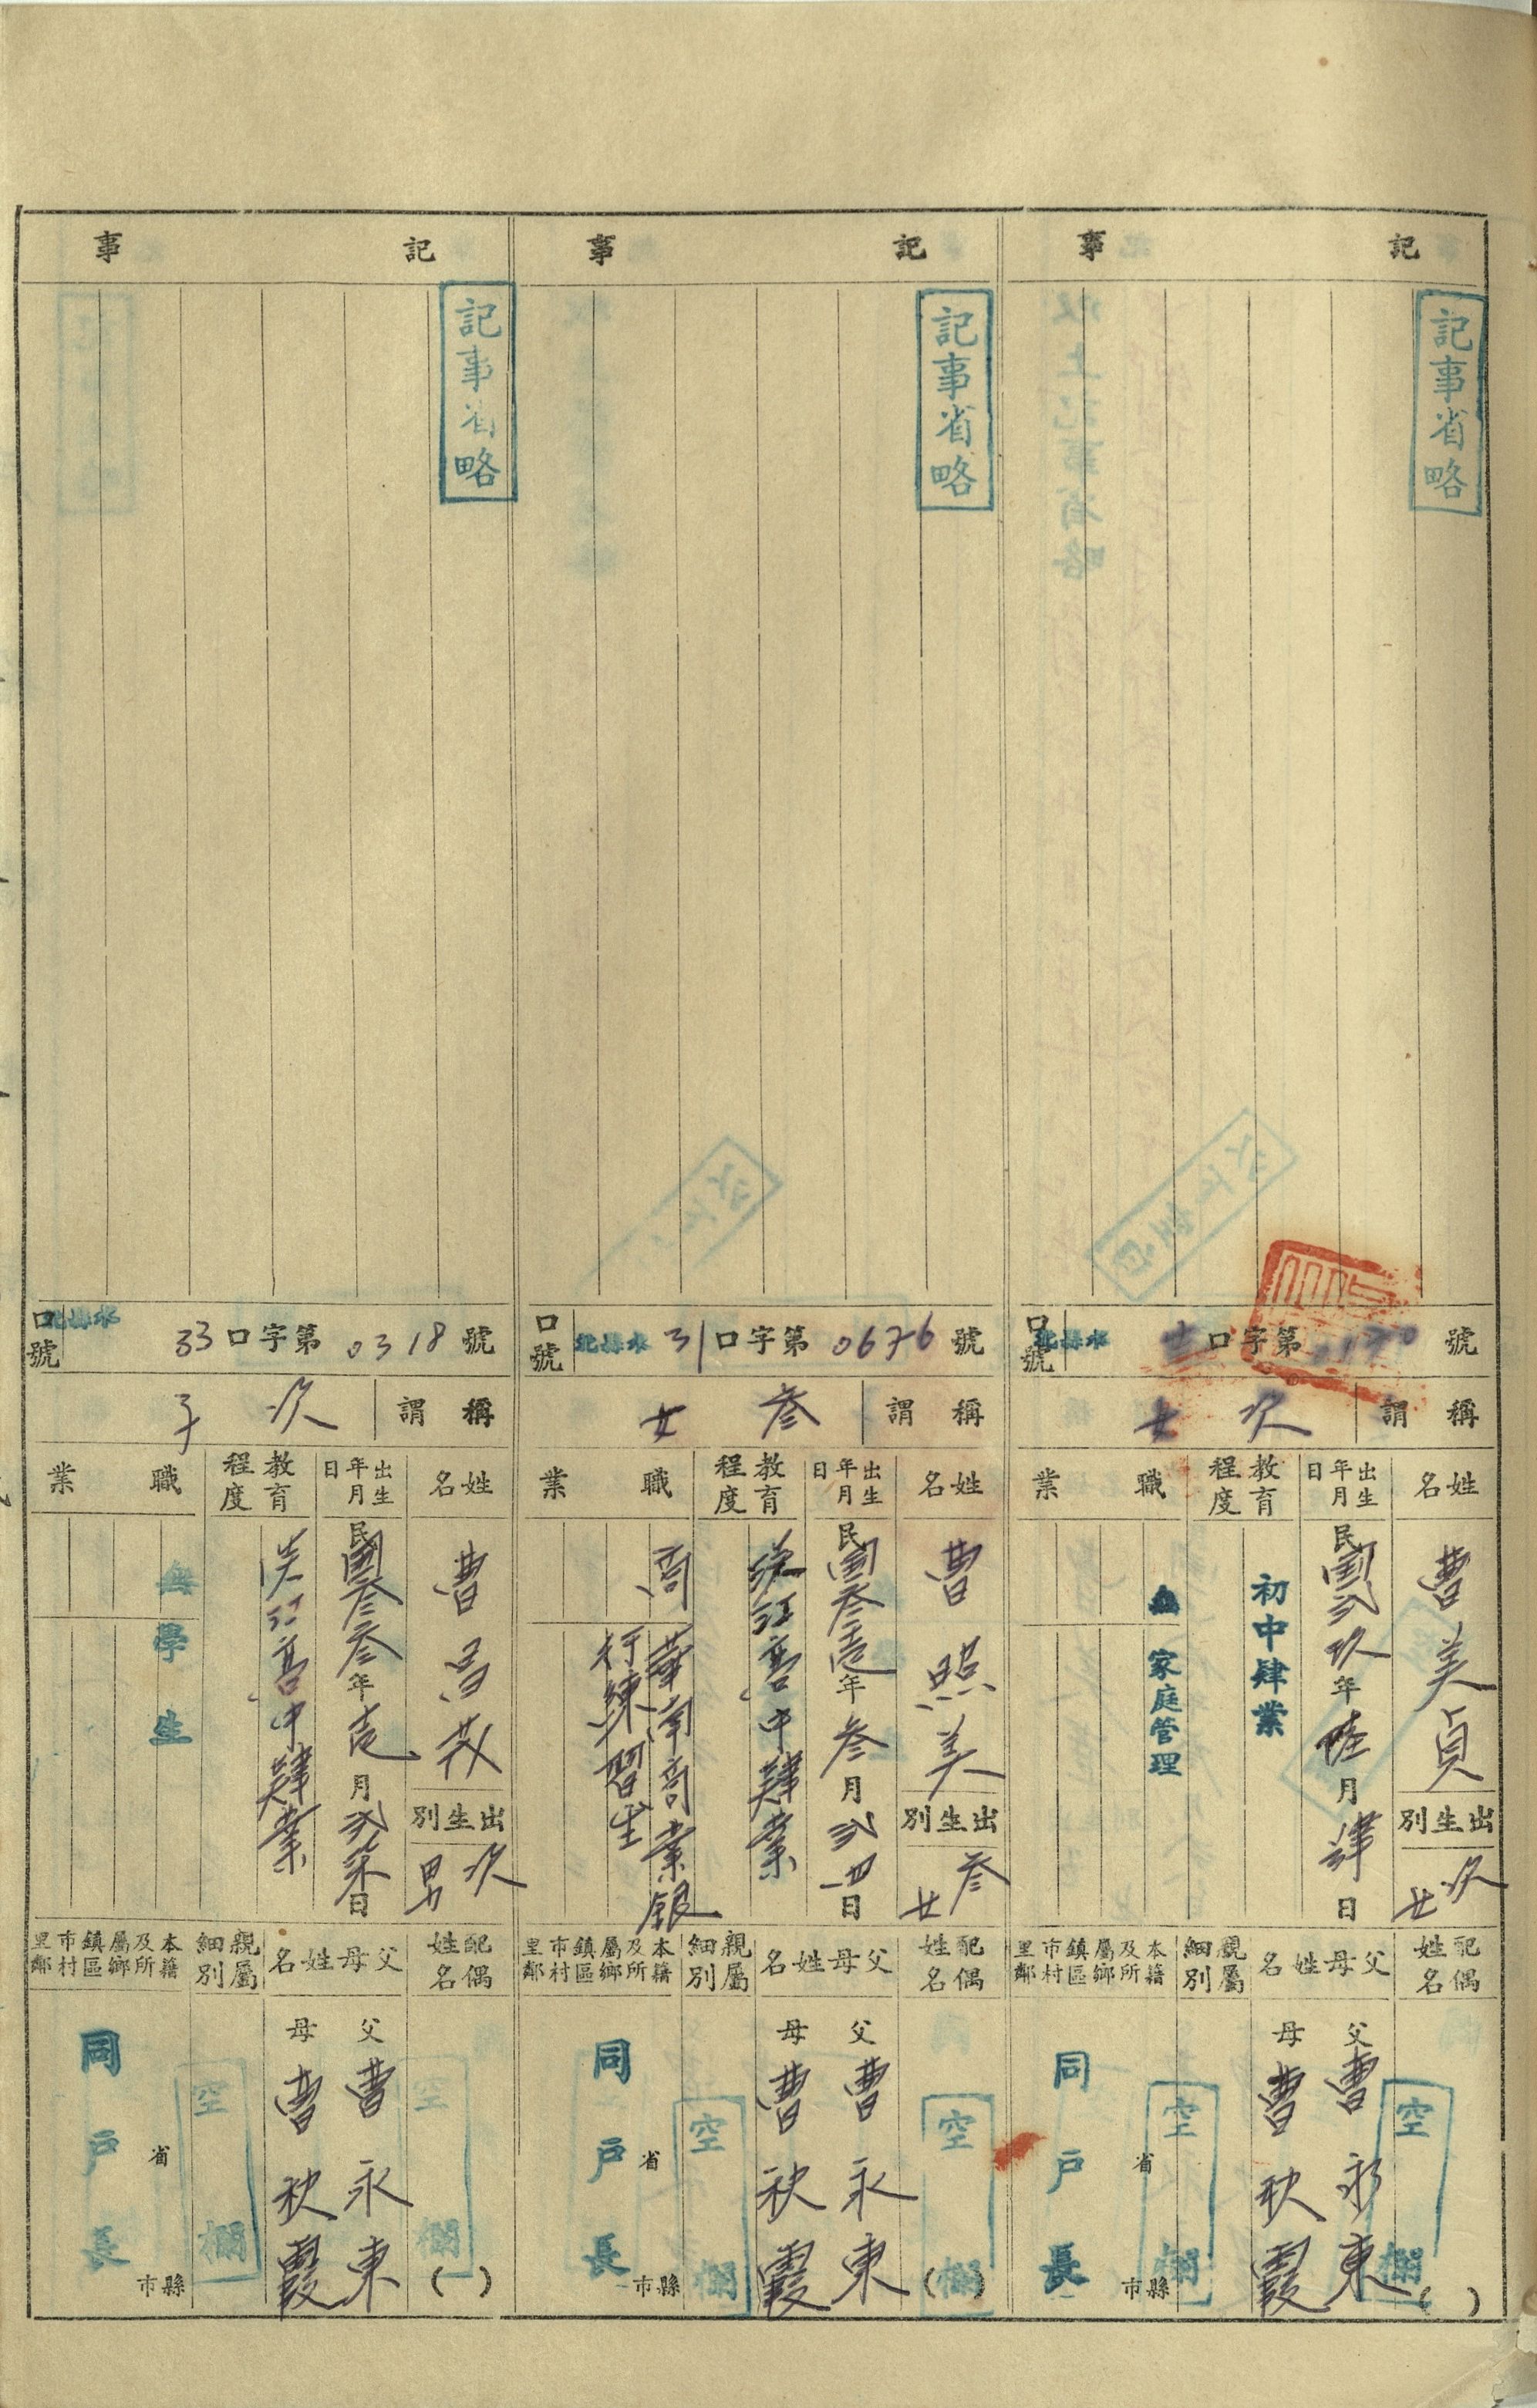 記事
記事省略
口號 北縣水 口字第 號
稱謂 次女
姓名 曹美貞
出生別 次女
出生年月日 民國貳玖年陸月肆日
教育程度 初中肄業
職業 無 家庭管理
配偶姓名 空欄 ( )
父母姓名 父 曹永東 母 曹秋霞
親屬細別 空欄
本籍及所屬鄉鎮區市村里鄰 省 縣市 同戶長
記事
記事省略
口號 北縣水 31 口字第 0676 號
稱謂 參女
姓名 曹照美
出生別 參女
出生年月日 民國參壹年參月貳四日
教育程度 淡江高中肄業
職業 商 華南商業銀行練習生
配偶姓名 空欄 ( )
父母姓名 父 曹永東 母 曹秋霞
親屬細別 空欄
本籍及所屬鄉鎮區市村里鄰 省 縣市 同戶長
記事
記事省略
口號 北縣水 33 口字第 0318 號
稱謂 次子
姓名 曹昌
出生別 次男
出生年月日 民國參參年壹月貳柒日
教育程度 淡江高中肄業
職業 無 學生
配偶姓名 空欄 ( )
父母姓名 父 曹永東 母 曹秋霞
親屬細別 空欄
本籍及所屬鄉鎮區市村里鄰 省 縣市 同戶長